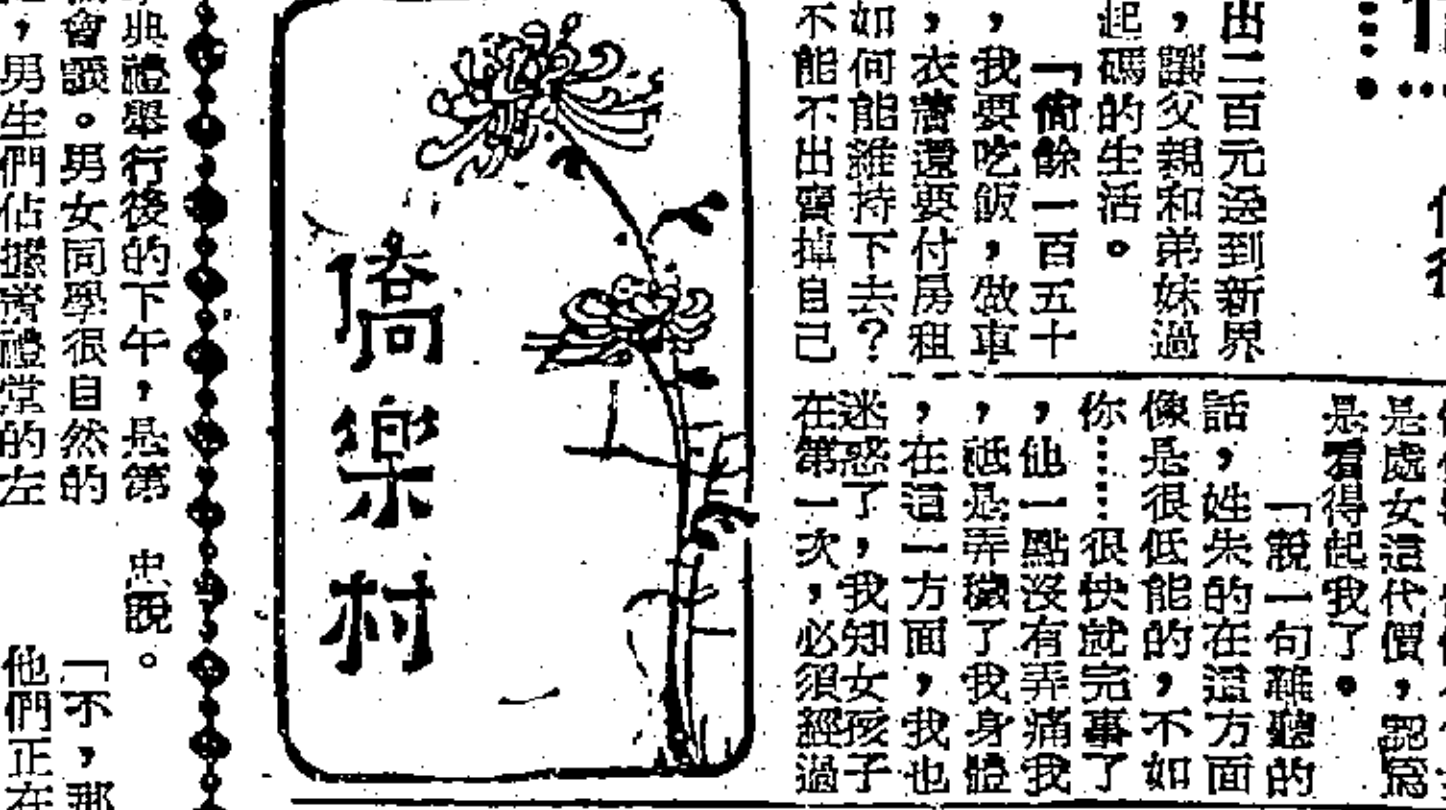 出二百元送到新界
，讓父親和弟妹過
起碼的生活。
「尙餘一百五十
，我要吃飯，做車
，衣著還要付房租
如何能維持下去？
不能不出賣掉自己
是處女這代價，認爲
是看得起我了。
「說一句難聽的
話，姓朱的在這方面
像是很低能的，不如
你……很快就完事了
，他一點沒有弄痛我
，祗是弄穢了我身體
，在這一方面，我也
迷惑了，我知女孩子
在第一次，必須經過
僑樂村
典禮舉行後的下午，是第
會議。男女同學很自然的
，男生們佔據禮堂的左
忠說。
「不，那
他們正在